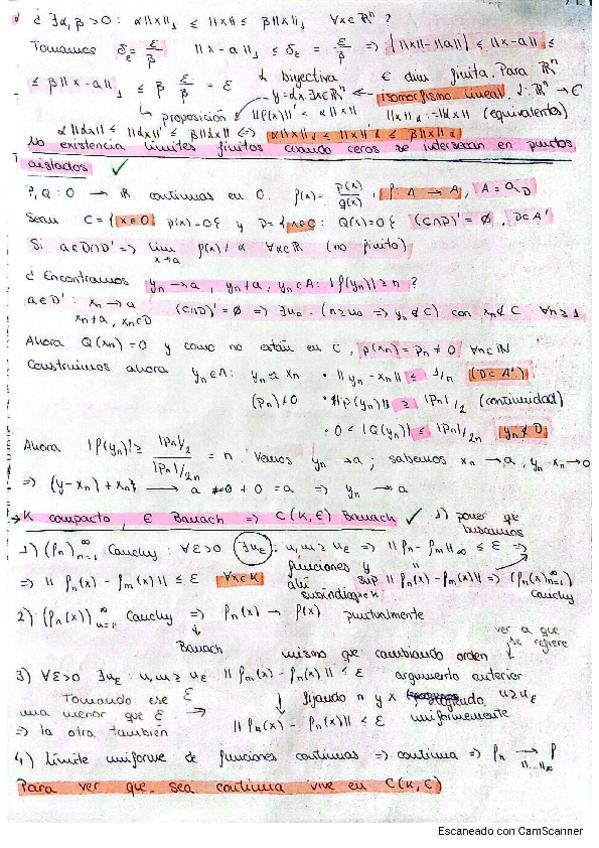 ¿ ∃α, β > 0 : α||x||₁ ≤ ||x|| ≤ β||x||₁ ∀x∈ℝⁿ ?
Tomamos δ_ε = ε/β ||x-a||₁ ≤ δ_ε = ε/β ⇒ | ||x||-||a|| | ≤ ||x-a|| ≤
≤ β||x-a||₁ ≤ β ε/β = ε biyectiva E dim finita. Para ℝⁿ
y=αx ∃x∈ℝⁿ isomorfismo lineal. : ℝⁿ → E
proposición (equivalentes)
α||αx||' ≤ ||αx||' ≤ β||αx|| ⇔
No existencia límites finitos cuando ceros se intersecan en puntos
aislados ✓
P, Q : O → ℝ continuas en O. f(x) = p(x)/q(x)
Sean C = {x∈O : p(x)=0} y D = {x∈O : Q(x)=0} (C∩D)' = ∅ D⊂A'
Si a∈D∩D' ⇒ lim x→a f(x) ≠ α ∀α∈ℝ (no finito)
¿ Encontramos yₙ→a, yₙ≠a, yₙ∈A : |f(yₙ)| ≥ n ?
a∈D' : xₙ→a (C∩D)' = ∅ ⇒ ∃n₀ . (n≥n₀ ⇒ yₙ∉C) con xₙ∉C ∀n≥1
xₙ≠a, xₙ∈D
Ahora Q(xₙ)=0 y como no están en C, p(xₙ)=pₙ≠0 ∀n∈ℕ
Construimos ahora yₙ∈A : yₙ≈xₙ • ||yₙ-xₙ|| ≤ 1/n (D⊂A')
(pₙ)≠0 • |P(yₙ)| ≥ |pₙ|/2 (continuidad)
• 0 < |Q(yₙ)| ≤ |pₙ|/2n yₙ∉D
Ahora |f(yₙ)| ≥ (|pₙ|/2)/(|pₙ|/2n) = n Vemos yₙ→a ; sabemos xₙ→a, yₙ-xₙ→0
⇒ (y-xₙ)+xₙ → a + 0 = a ⇒ yₙ→a
→ K compacto, E Banach ⇒ C(K,E) Banach ✓ 1) poner que
buscamos
1) (fₙ)ₙ₌₁^∞ Cauchy : ∀ε>0 ∃n_ε : n,m≥n_ε ⇒ ||fₙ-fₘ||_∞ ≤ ε ⇒
funciones y
ahí
subíndique
⇒ ||fₙ(x)-fₘ(x)|| ≤ ε ∀x∈K sup ||fₙ(x)-fₘ(x)|| ⇒ (fₙ(x)ₙ₌₁^∞)
Cauchy
2) (fₙ(x))ₙ₌₁^∞ Cauchy ⇒ fₙ(x) → f(x) puntualmente
Banach
ver a que
se refiere
mismo que cambiando orden
3) ∀ε>0 ∃n_ε : n,m≥n_ε ||fₘ(x)-fₙ(x)|| ≤ ε argumento anterior
Tomando ese ε fijando n y x n≥n_ε
una menor que ε → ||fₙ(x)-f(x)|| ≤ ε uniformemente
⇒ la otra también
4) Límite uniforme de funciones continuas ⇒ continua ⇒ fₙ → f
||..||_∞
Para ver que sea continua vive en C(K,E)
Escaneado con CamScanner